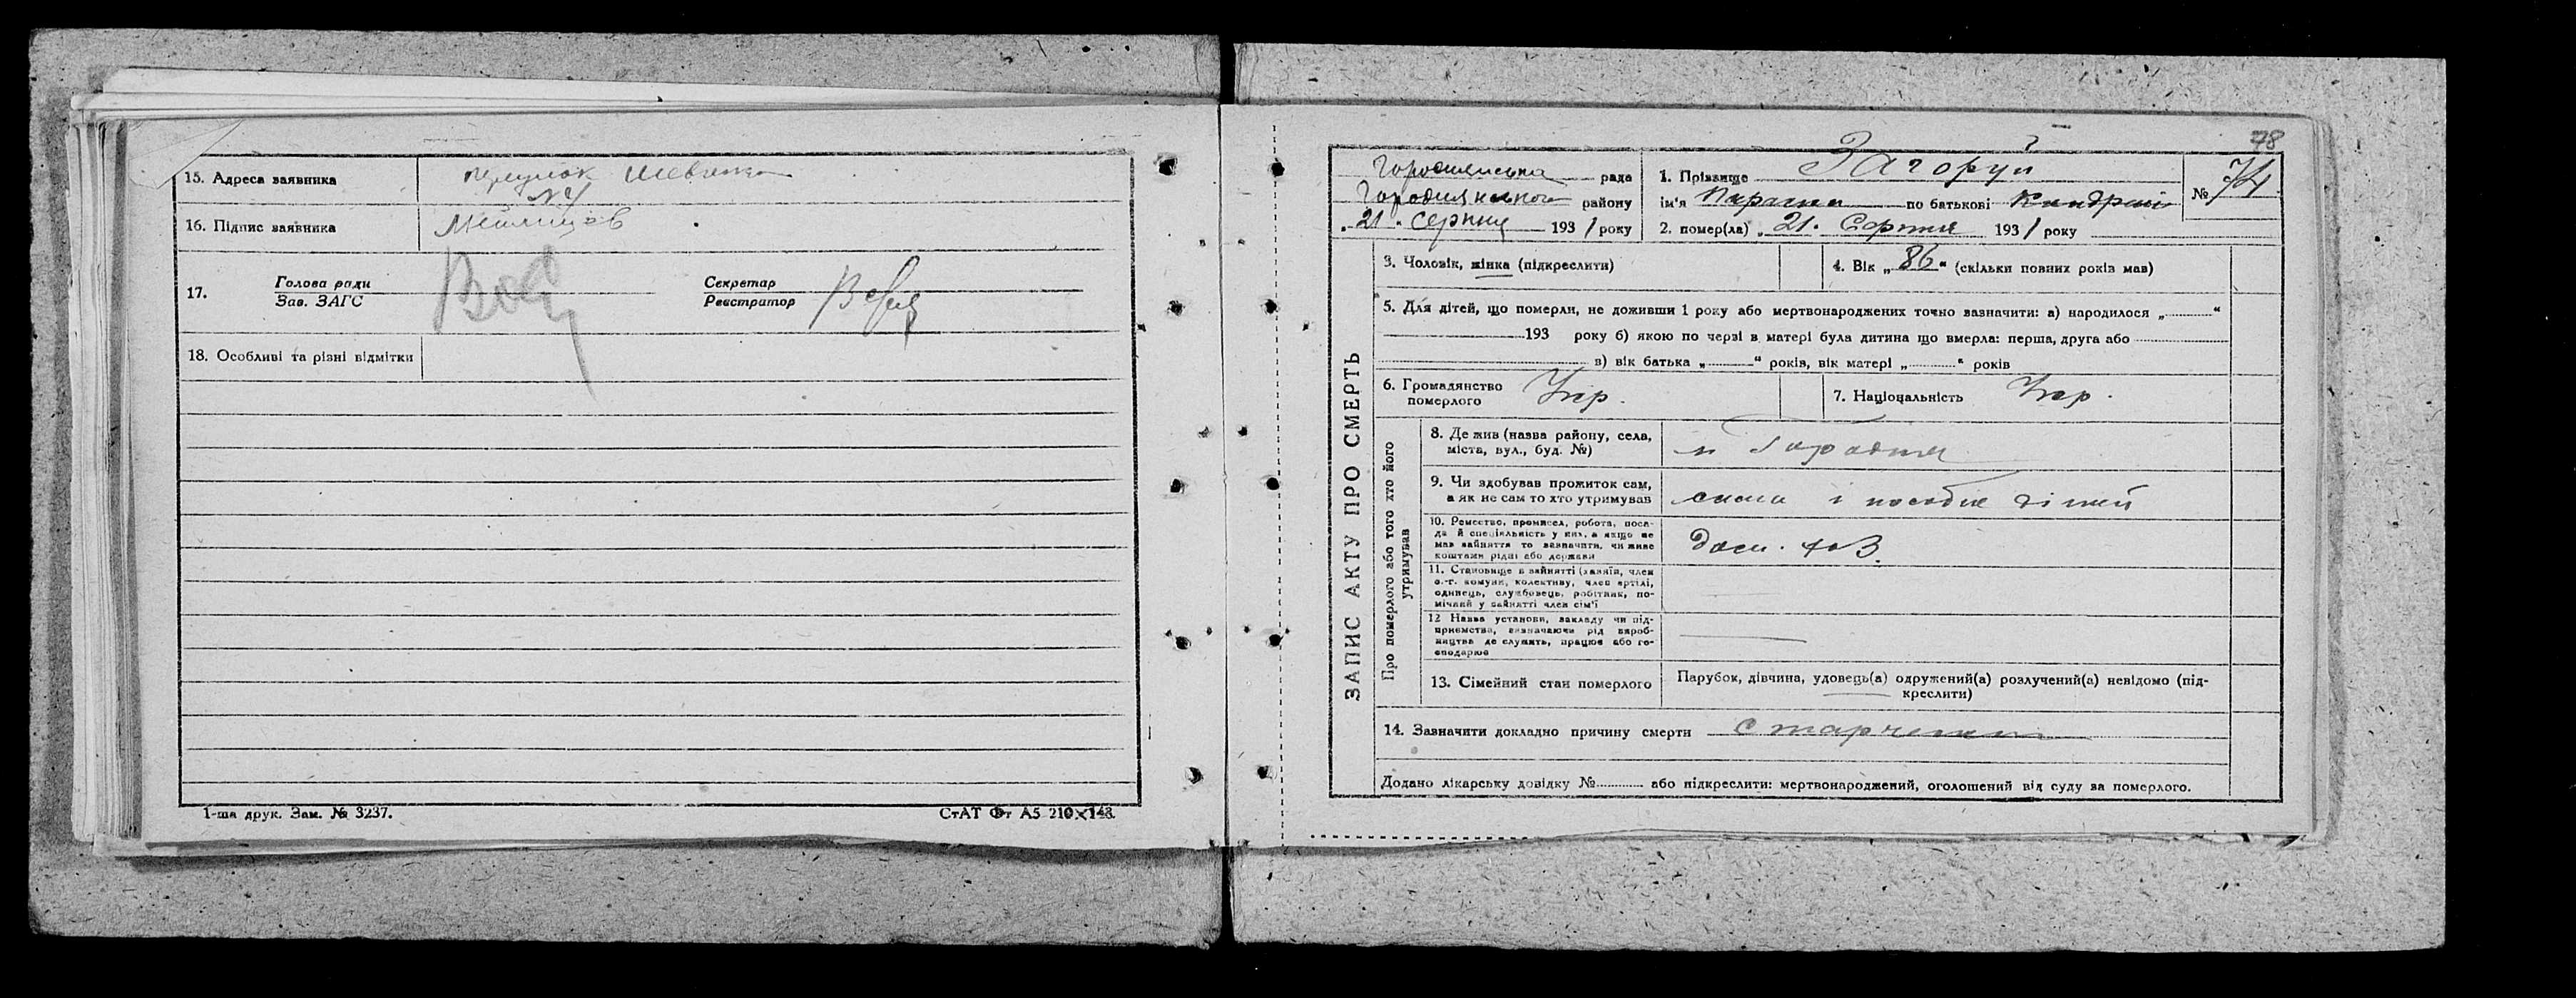 15. Адреса заявника
переулок Шевченка
№4
16. Підпис заявника
17. Голова ради
Зав. ЗАГС
Секретар
Реєстратор
18. Особливі та різні відмітки
1-ша друк. Зам. № 3237.
СтАТ Фт А5 210×148.
78
Городнянська рада
Городнянського району
„21“ Серпня 1931 року
1. Прізвище Загоруй
№ 74
ім'я Параска по батькові
2. помер(ла) „21. Серпня 1931 року
ЗАПИС АКТУ ПРО СМЕРТЬ
3. Чоловік, жінка (підкреслити)
4. Вік „86“ (скільки повних років мав)
5. Для дітей, що померли, не доживши 1 року або мертвонароджених точно зазначити: а) народилося „ “
193 року б) якою по черзі в матері була дитина що вмерла: перша, друга або
в) вік батька „ “ років, вік матері „ “ років
6. Громадянство померлого Укр.
7. Національність Укр.
Про померлого або того хто його утримував
8. Де жив (назва району, села,
міста, вул., буд. №)
м Городня
9. Чи здобував прожиток сам,
а як не сам то хто утримував
10. Ремество, промисел, робота, поса-
да й спеціяльність у них, а якщо не
мав зайняття то зазначити, чи живе
коштами рідні або держави
11. Становище в зайнятті (хазяїн, член
с.-г. комуни, колективу, член артілі,
одинець, службовець, робітник, по-
мічний у зайнятті член сім'ї
12 Назва установи, закладу чи під-
приємства, зазначаючи рід вироб-
ництва де служить, працює або го-
сподарює
13. Сімейний стан померлого
Парубок, дівчина, удовець(а) одружений(а) розлучений(а) невідомо (під-
креслити)
14. Зазначити докладно причину смерти
Додано лікарську довідку № або підкреслити: мертвонароджений, оголошений від суду за померлого.